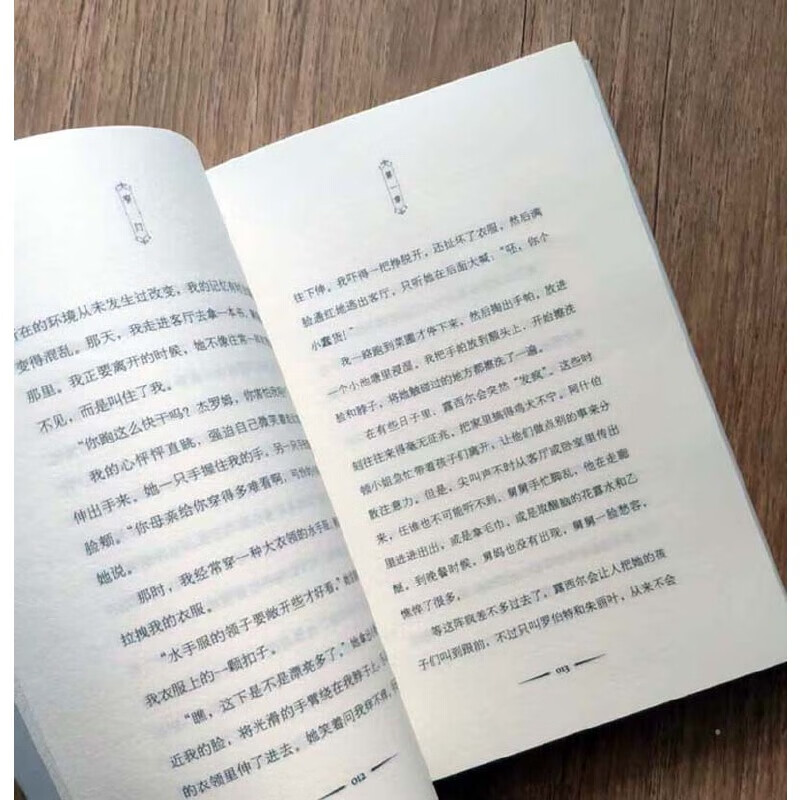 窄门
在的环境从未发生过改变，我的记忆有
变得混乱。那天，我走进客厅去拿一本书，
那里。我正要离开的时候，她不像往常一
不见，而是叫住了我。
“你跑这么快干吗？杰罗姆，你害怕我
我的心怦怦直跳，强迫自己微笑着走
伸出手来。她一只手握住我的手，另一只手
脸颊。
“你母亲给你穿得多难看啊，可怜
她说。
那时，我经常穿一种大衣领的水手服，
拉拽我的衣服。
“水手服的领子要敞开些才好看。”
我衣服上的一颗扣子。
“瞧，这下是不是漂亮多了。”她拿出
近我的脸，将光滑的手臂绕在我脖子上，
的衣领里伸了进去。她笑着问我痒不痒，
012
第一章
往下伸。我吓得一把挣脱开，还扯坏了衣服，然后满
脸通红地逃出客厅，只听她在后面大喊：“呸，你个
小蠢货！”
我一路跑到菜圃才停下来，然后掏出手帕，放进
一个小池塘里浸湿。我把手帕放到额头上，开始擦洗
脸和脖子，将她触碰过的地方都擦洗了一遍。
在有些日子里，露西尔会突然“发疯”。这些时
刻往往来得毫无征兆，把家里搞得鸡犬不宁。阿什伯
顿小姐急忙带着孩子们离开，让他们做点别的事来分
散注意力。但是，尖叫声不时从客厅或卧室里传出
来，任谁也不可能听不到。舅舅手忙脚乱，他在走廊
里进进出出，或是拿毛巾，或是放醒脑的花露水和乙
醚。到晚餐时候，舅妈也没有出现，舅舅一脸愁容，
憔悴了很多。
等这阵疯差不多过去了，露西尔会让人把她的孩
子们叫到跟前，不过只叫罗伯特和朱丽叶，从来不会
013